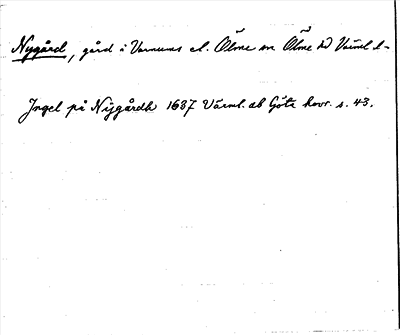 Nygård, gård i Varnums el. Ölme sn Ölme hd Värml l-
Ingel på Nijgårdh 1637 Värml. ab Göta hovr. s. 43.